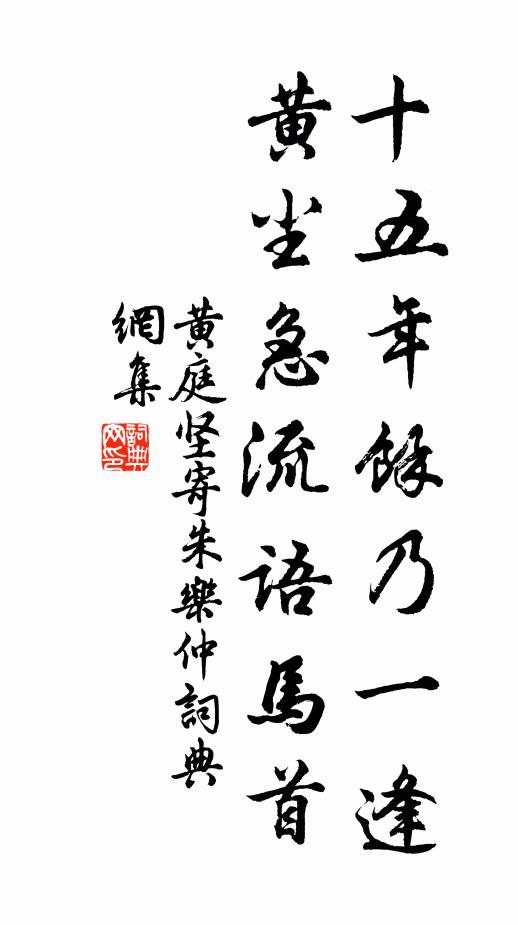 十五年餘乃一逢
黄尘急流語馬首
黄庭坚寄朱樂仲詞典
網集
詞典網印